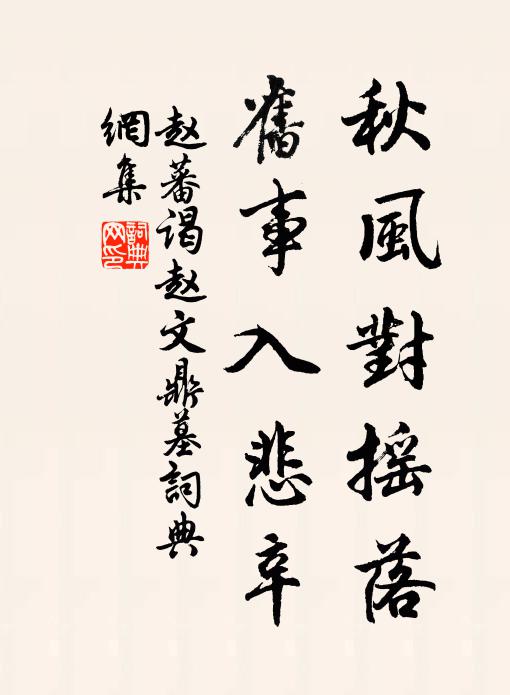 秋風對摇落
舊事入悲辛
赵蕃谒赵文鼎墓詞典
網集
詞典
网印